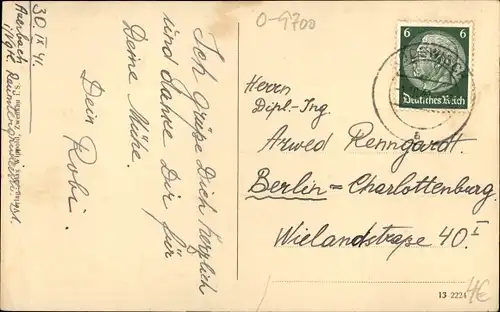 30. IX 41.
Auerbach
i/Vgtl.
Ich grüße Dich herzlich
und danke Dir für
Deine Mühe.
Dein Robi.
O-9700
6 6
Deutsches Reich
Herrn
Dipl.-Ing.
Arwed Renngardt.
Berlin=Charlottenburg.
Wielandstraße 40.I
13 2224
4€